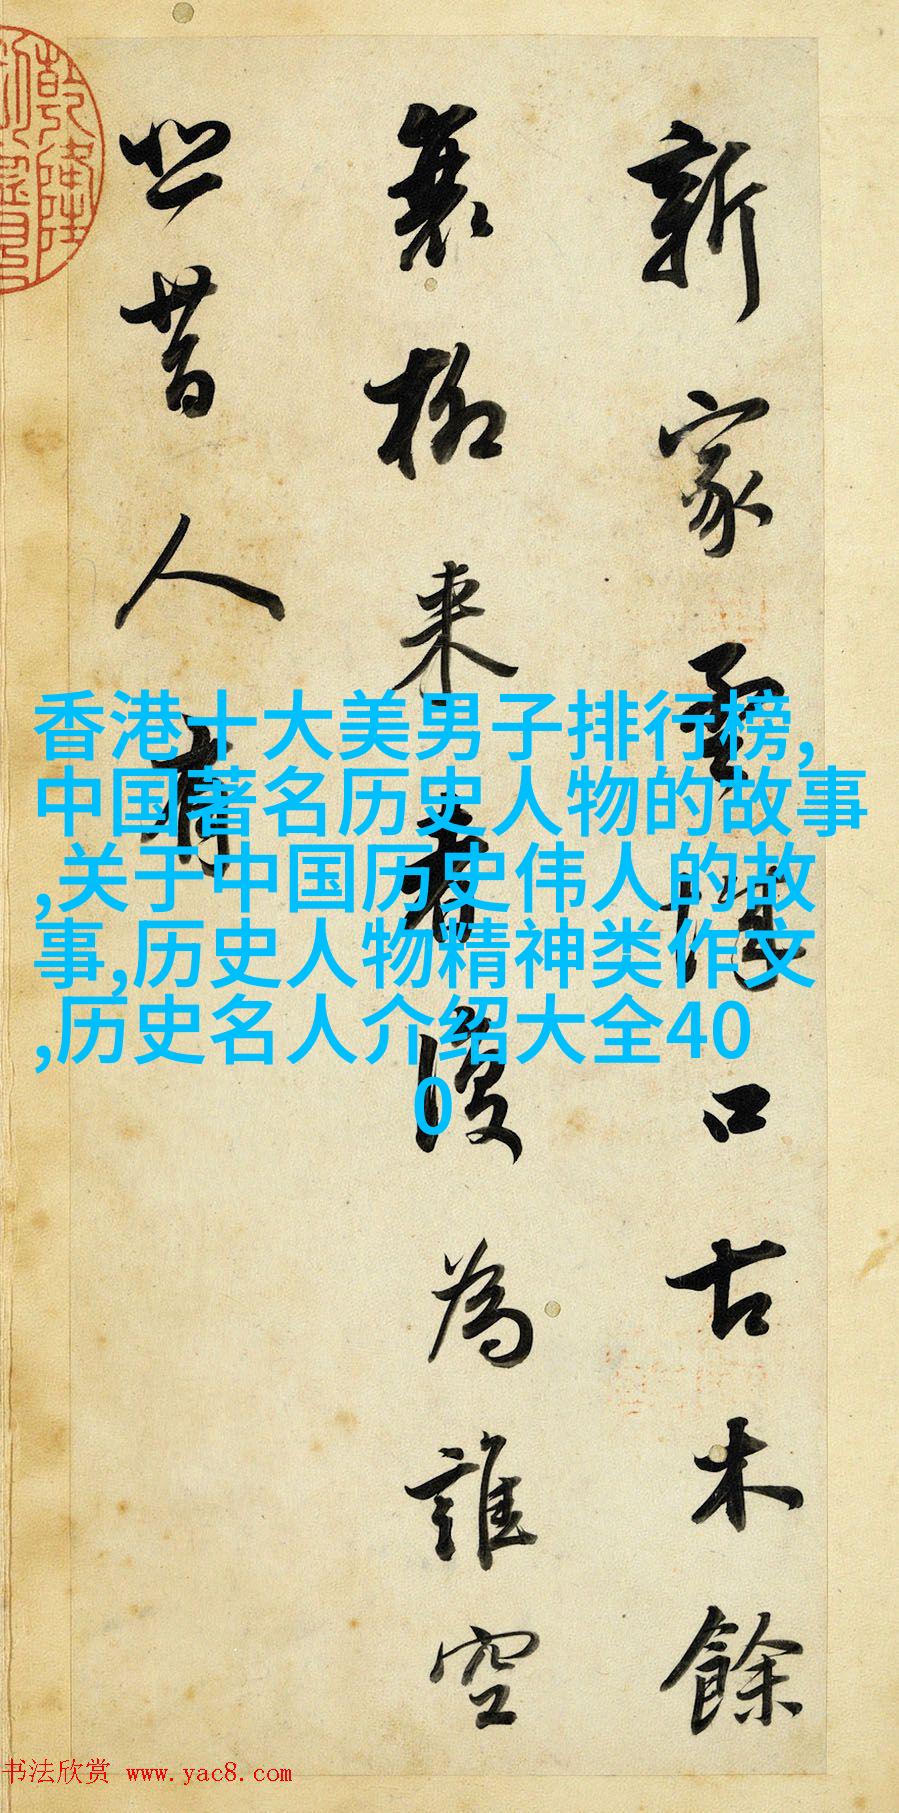 新家孟城口古木餘
衰柳來者復為誰空
悲昔人有
香港十大美男子排行榜,
中国著名历史人物的故事
,关于中国历史伟人的故
事,历史人物精神类作文
,历史名人介绍大全40
0
书法欣赏 www.yac8.com